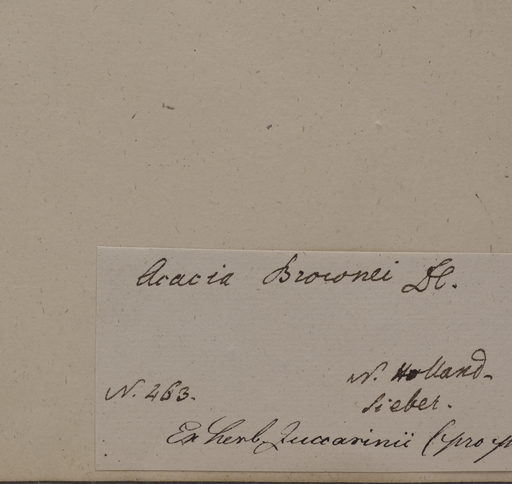 Acacia Brownei
N. Holland.
N. 463.
Sieber.
Ex herb. Zuccarinii (pro p